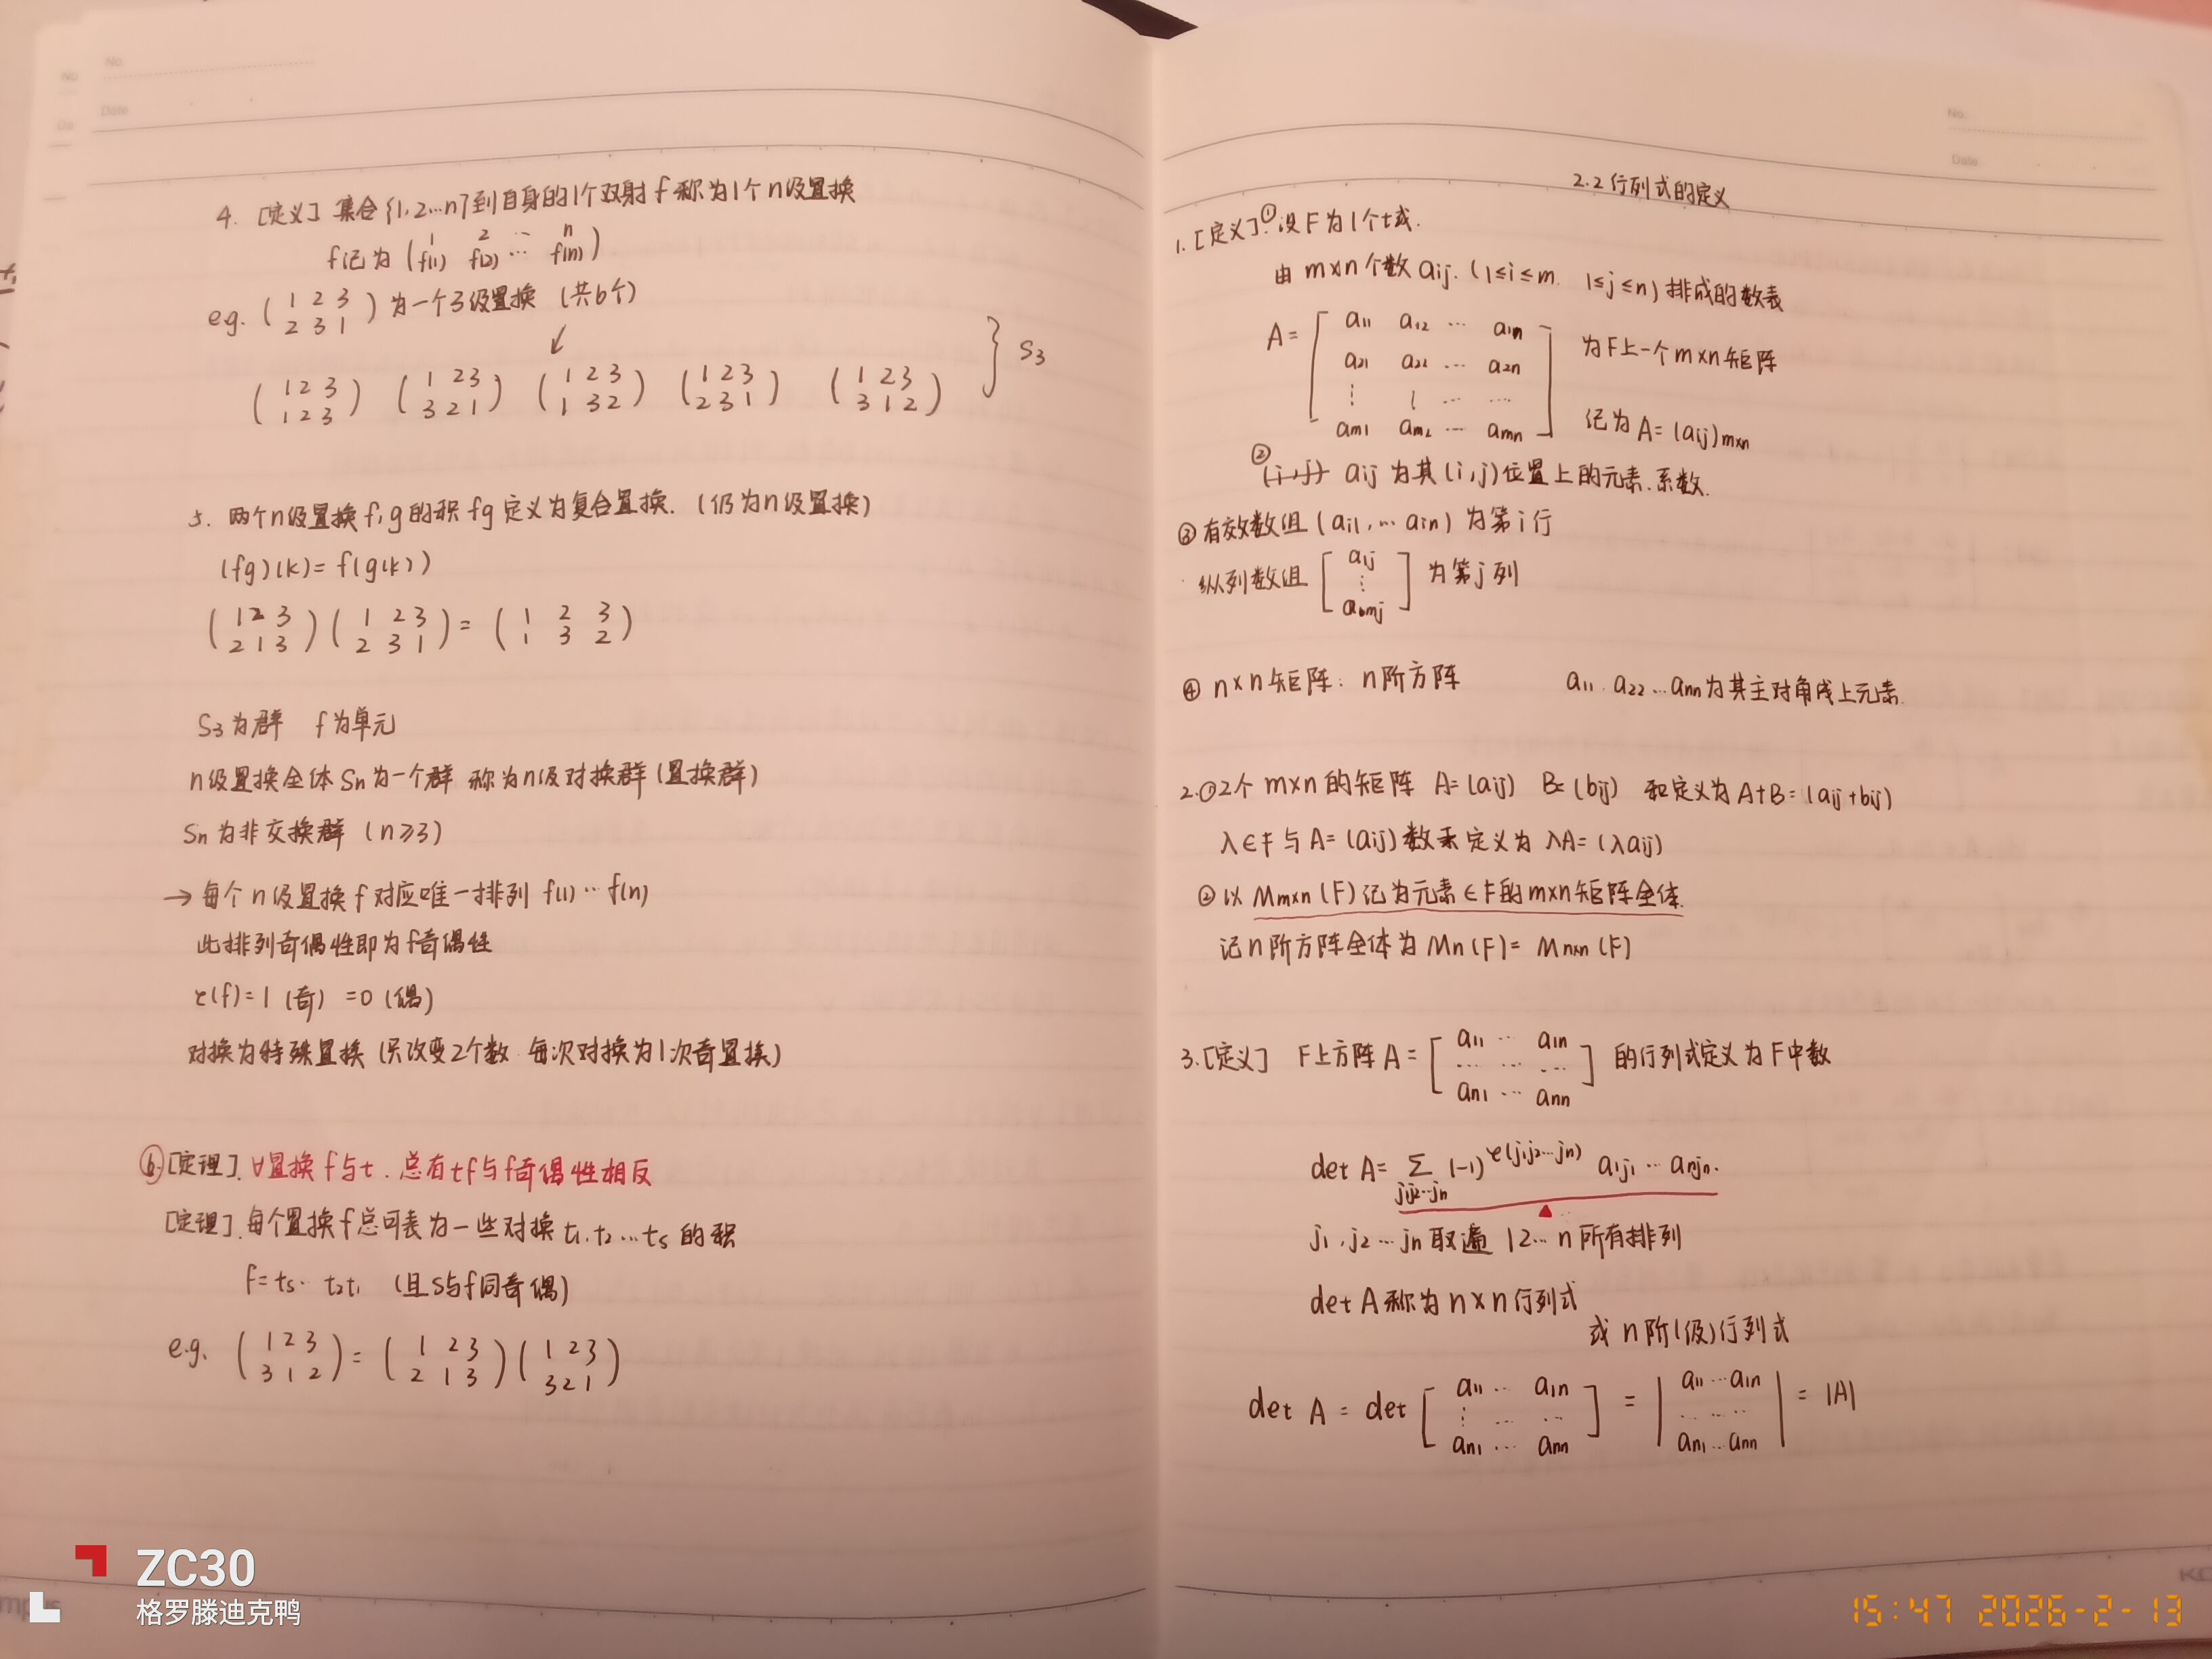 No.
Date
4. [定义] 集合{1,2…n}到自身的1个双射 f 称为1个n级置换
f记为 (1 2 … n / f(1) f(2) … f(n))
e.g. (1 2 3 / 2 3 1) 为一个3级置换 (共6个)
↙
(1 2 3 / 1 2 3) (1 2 3 / 3 2 1) (1 2 3 / 1 3 2) (1 2 3 / 2 3 1) (1 2 3 / 3 1 2) } S3
5. 两个n级置换f,g的积fg定义为复合置换. (仍为n级置换)
(fg)(k)= f(g(k))
(1 2 3 / 2 1 3)(1 2 3 / 2 3 1) = (1 2 3 / 1 3 2)
S3为群 f为单元
n级置换全体Sn为一个群 称为n级对换群(置换群)
Sn为非交换群 (n≥3)
→ 每个n级置换f对应唯一排列 f(1)…f(n)
此排列奇偶性即为f奇偶性
τ(f)=1 (奇) =0 (偶)
对换为特殊置换 (只改变2个数 每次对换为1次奇置换)
⑥[定理]. ∀置换f与t. 总有tf与f奇偶性相反
[定理]. 每个置换f总可表为一些对换 t1.t2…ts 的积
f=ts… t2t1 (且s与f同奇偶)
e.g. (1 2 3 / 3 1 2) = (1 2 3 / 2 1 3)(1 2 3 / 3 2 1)
No.
Date
2.2 行列式的定义
1.[定义]:①设F为1个t或.
由 m×n 个数 aij. (1≤i≤m. 1≤j≤n) 排成的数表
A= [a11 a12 … a1n / a21 a22 … a2n / ⋮ ⋮ … … / am1 am2 … amn] 为F上一个m×n矩阵
记为 A=(aij)m×n
② (i,j) aij 为其(i,j)位置上的元素.系数.
③有效数组 (ai1,… ain) 为第i行
纵列数组 [a1j / ⋮ / amj] 为第j列
④ n×n矩阵: n阶方阵 a11. a22 …ann为其主对角线上元素.
2.①2个 m×n 的矩阵 A=(aij) B=(bij) 和定义为A+B=(aij+bij)
λ∈F 与 A=(aij) 数乘定义为 λA=(λaij)
②以 Mm×n(F) 记为元素∈F的m×n矩阵全体.
记n阶方阵全体为 Mn(F)= Mn×n(F)
3.[定义] F上方阵A= [a11 … a1n / … … … / an1 … ann] 的行列式定义为F中数
det A= Σ j1j2…jn (-1)^τ(j1j2…jn) a1j1 … anjn.
j1,j2 … jn 取遍 12…n所有排列
det A称为n×n行列式
或 n阶(级)行列式
det A = det [a11 … a1n / ⋮ … … / an1 … ann] = |a11 … a1n / … … / an1 … ann| = |A|
ZC30
格罗滕迪克鸭
15:47 2026-2-13